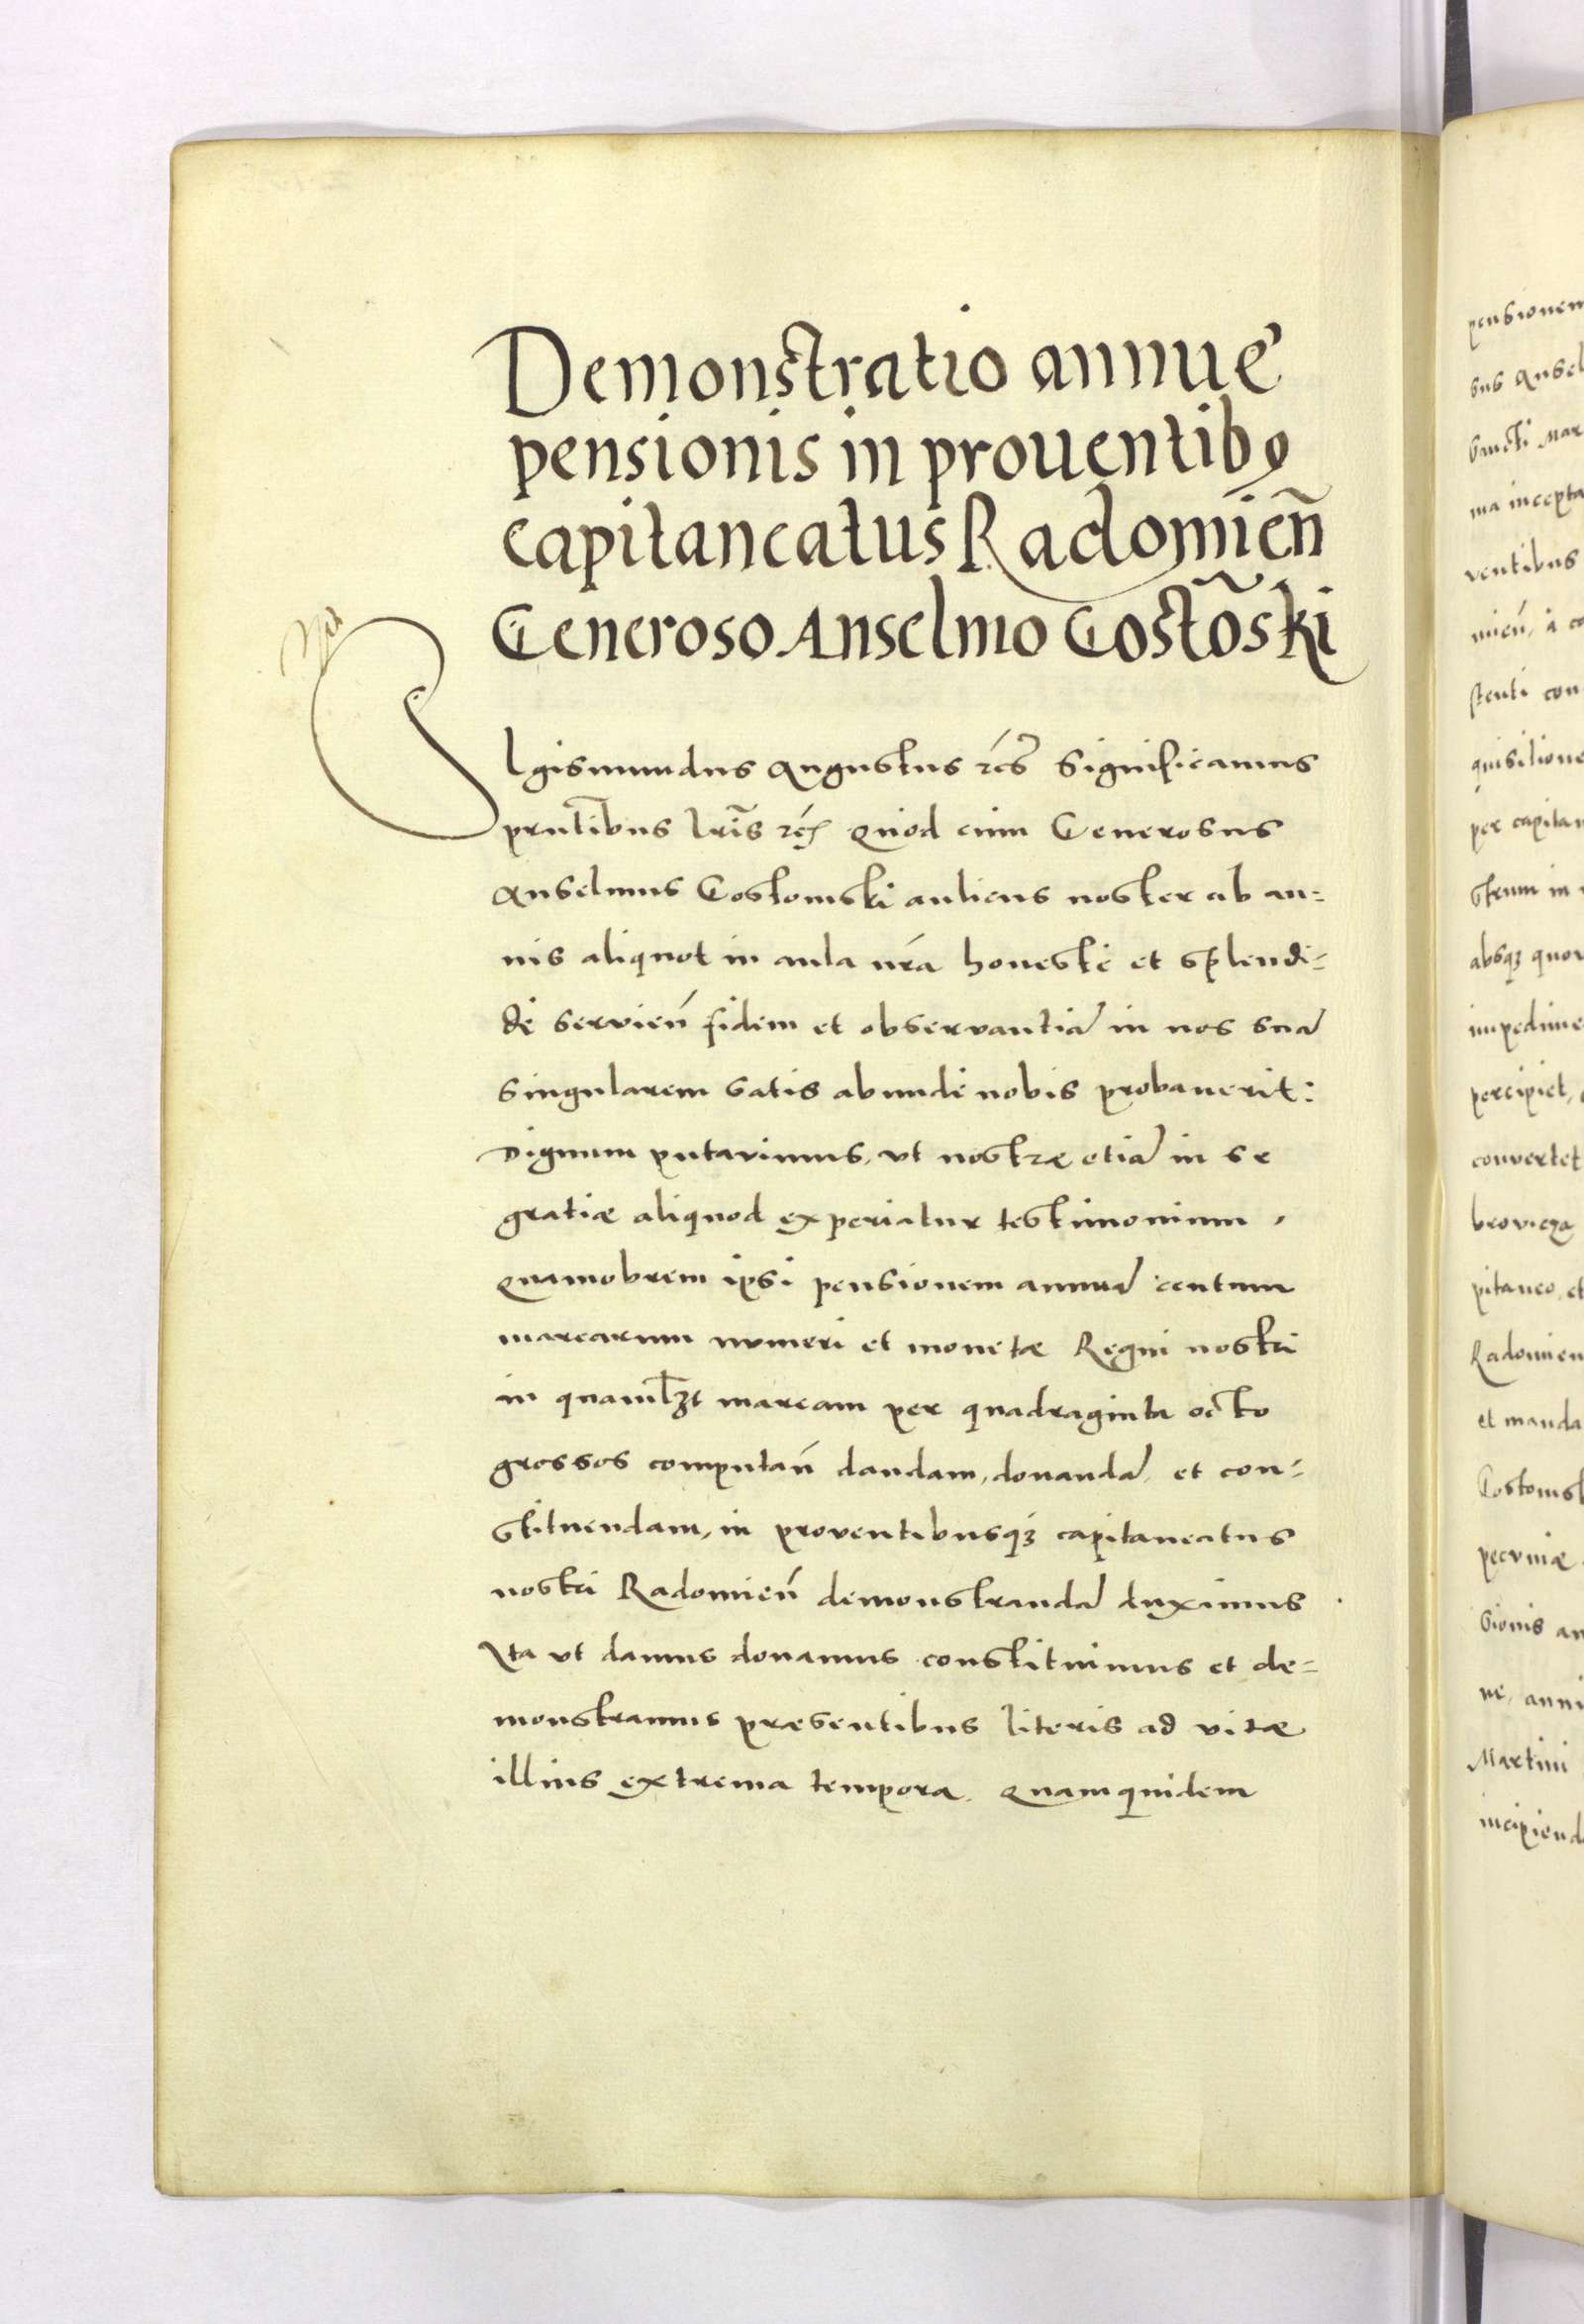 Demonstratio annuę
pensionis in prouentibꝯ
capitaneatus Radomień
Generoso Anselmo Gostõski
SIgismundus Augustus rcs Significamus
pñtibus lr̃is rc̃ Quod cum Generosus
Anselmus Gostomski aulicus noster ab an=
nis aliquot in aula nr̃a honestè et splendi=
dè servień fidem et observantiã in nos suã
singularem satis abundè nobis probauerit:
Dignum putavimus, vt nostræ etiã in se
gratiæ aliquod experiatur testimonium,
Quamobrem ipsi pensionem annuã centum
marcarum nvmeri et monetæ Regni nostri
in quamlꝫt marcam per quadraginta octo
grossos computań dandam, donandã, et con=
stituendam, in proventibusqꝫ capitaneatus
nostri Radomień demonstrandã duximus.
Ita vt damus donamus constituimus et de=
monstramus præsentibus literis ad vitæ
illius extrema tempora. Quamquidem
pensionem
sus Ansel
sancti Mar
ma incepta
ventibus
mień, à co
stenti con
quisitione
per capitan
strum in
absqꝫ quov
impedime
percipiet,
convertet
brovicza
pitaneo, et
Radomien
et manda
Gostomsk
pecvniæ
sionis an
ne, anni
Martini
incipiend